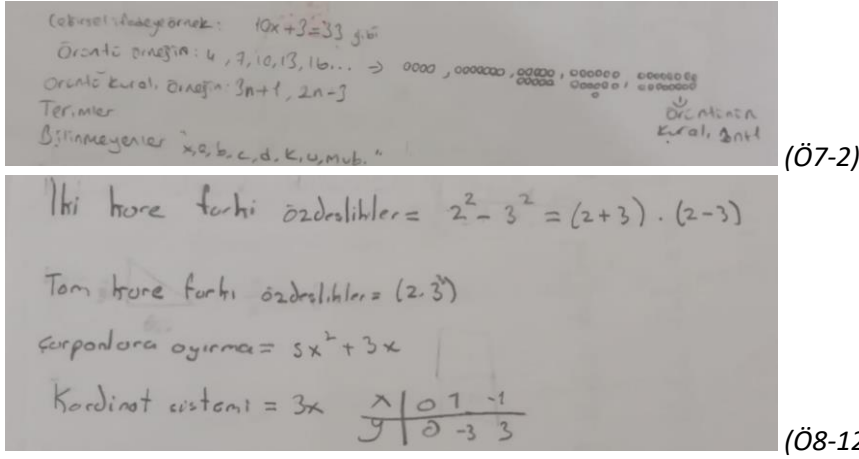 Cebirsel ifadeye örnek: 10x+3=33 gibi
Örüntü örneğin: 4, 7, 10, 13, 16... → oooo, ooooooo, ooooo ooooo, oooooo oooooo o, oooooooo oooooooo
Örüntü kuralı örneğin: 3n+1, 2n-3
Örüntünün
Terimler
kuralı 3n+1
Bilinmeyenler "x,a,b,c,d,k,u,m vb."
(Ö7-2)
İki kare farkı özdeslikler= 2² - 3² = (2+3) . (2-3)
Tam kare farkı özdeslikler=
Çarponlara ayırma= 5x² + 3x
Kordinat sistemi = 3x x | 0 1 -1
y | 0 -3 3
(Ö8-12